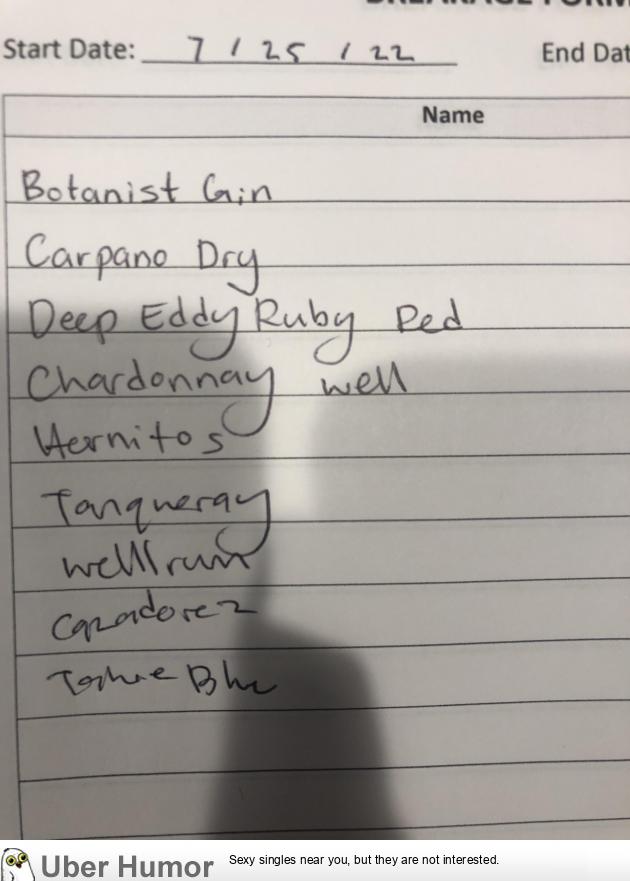 BREAKAGE FORM
Start Date: 7 / 25 / 22 End Dat
Name
Botanist Gin
Carpano Dry
Deep Eddy Ruby Red
Chardonnay well
Hernitos
Tanqueray
well rum
Cazadorez
Blue
Uber Humor
Sexy singles near you, but they are not interested.